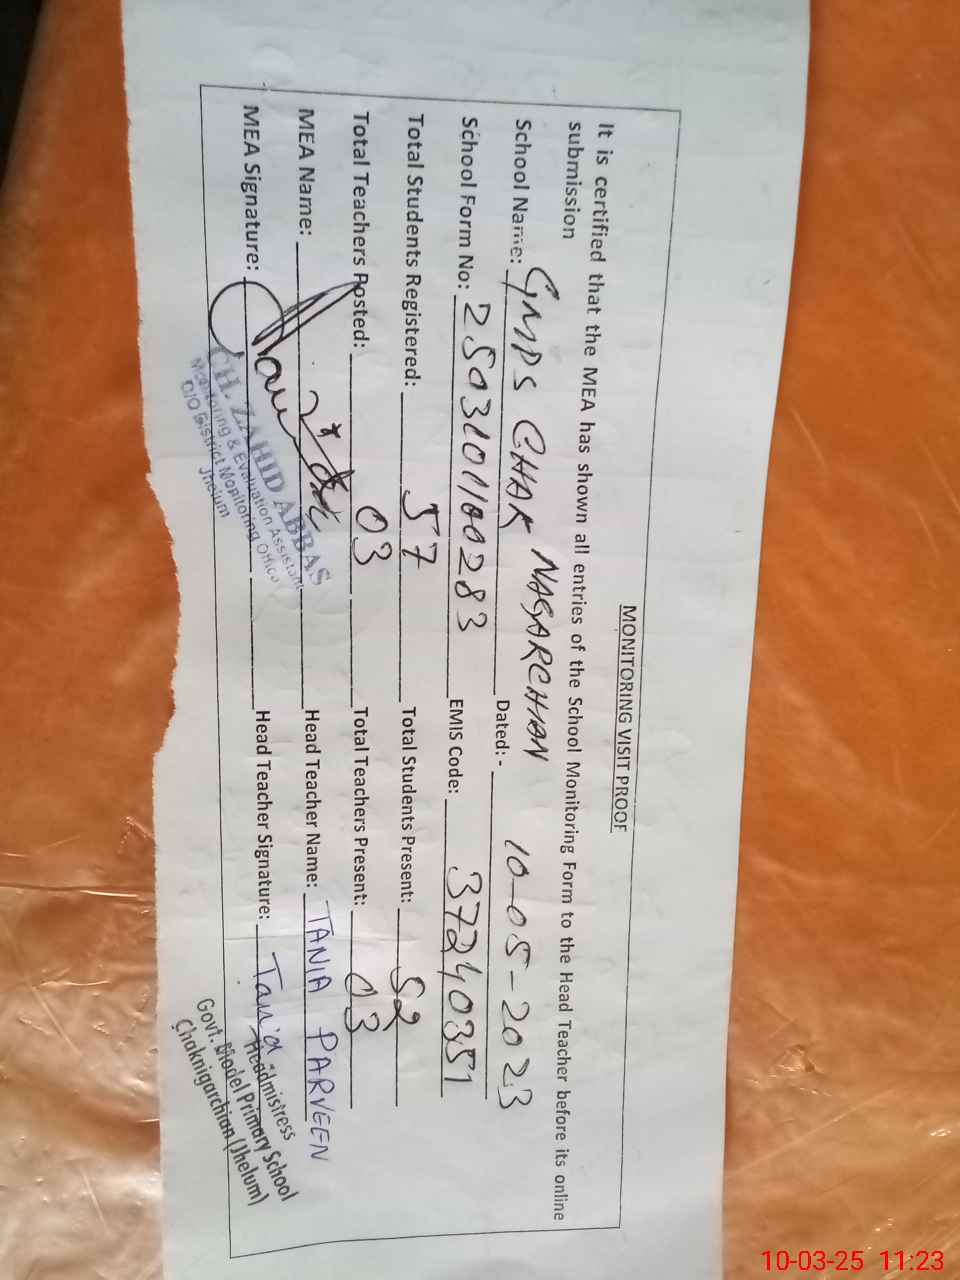 MONITORING VISIT PROOF
It is certified that the MEA has shown all entries of the School Monitoring Form to the Head Teacher before its online
submission
School Name: GMPS CHAK NAGARCHIAN Dated:- 10-05-2023
School Form No: 2503101100283 EMIS Code: 37240351
Total Students Registered: 57 Total Students Present: 52
Total Teachers Posted: 03 Total Teachers Present: 03
MEA Name: Head Teacher Name: TANIA PARVEEN
MEA Signature: Head Teacher Signature: Tania
CH. ZAHID ABBAS
Monitoring & Evaluation Assistant
O/O District Monitoring Office
Jhelum
Headmistress
Govt. Model Primary School
Chaknigarchian (Jhelum)
10-03-25 11:23